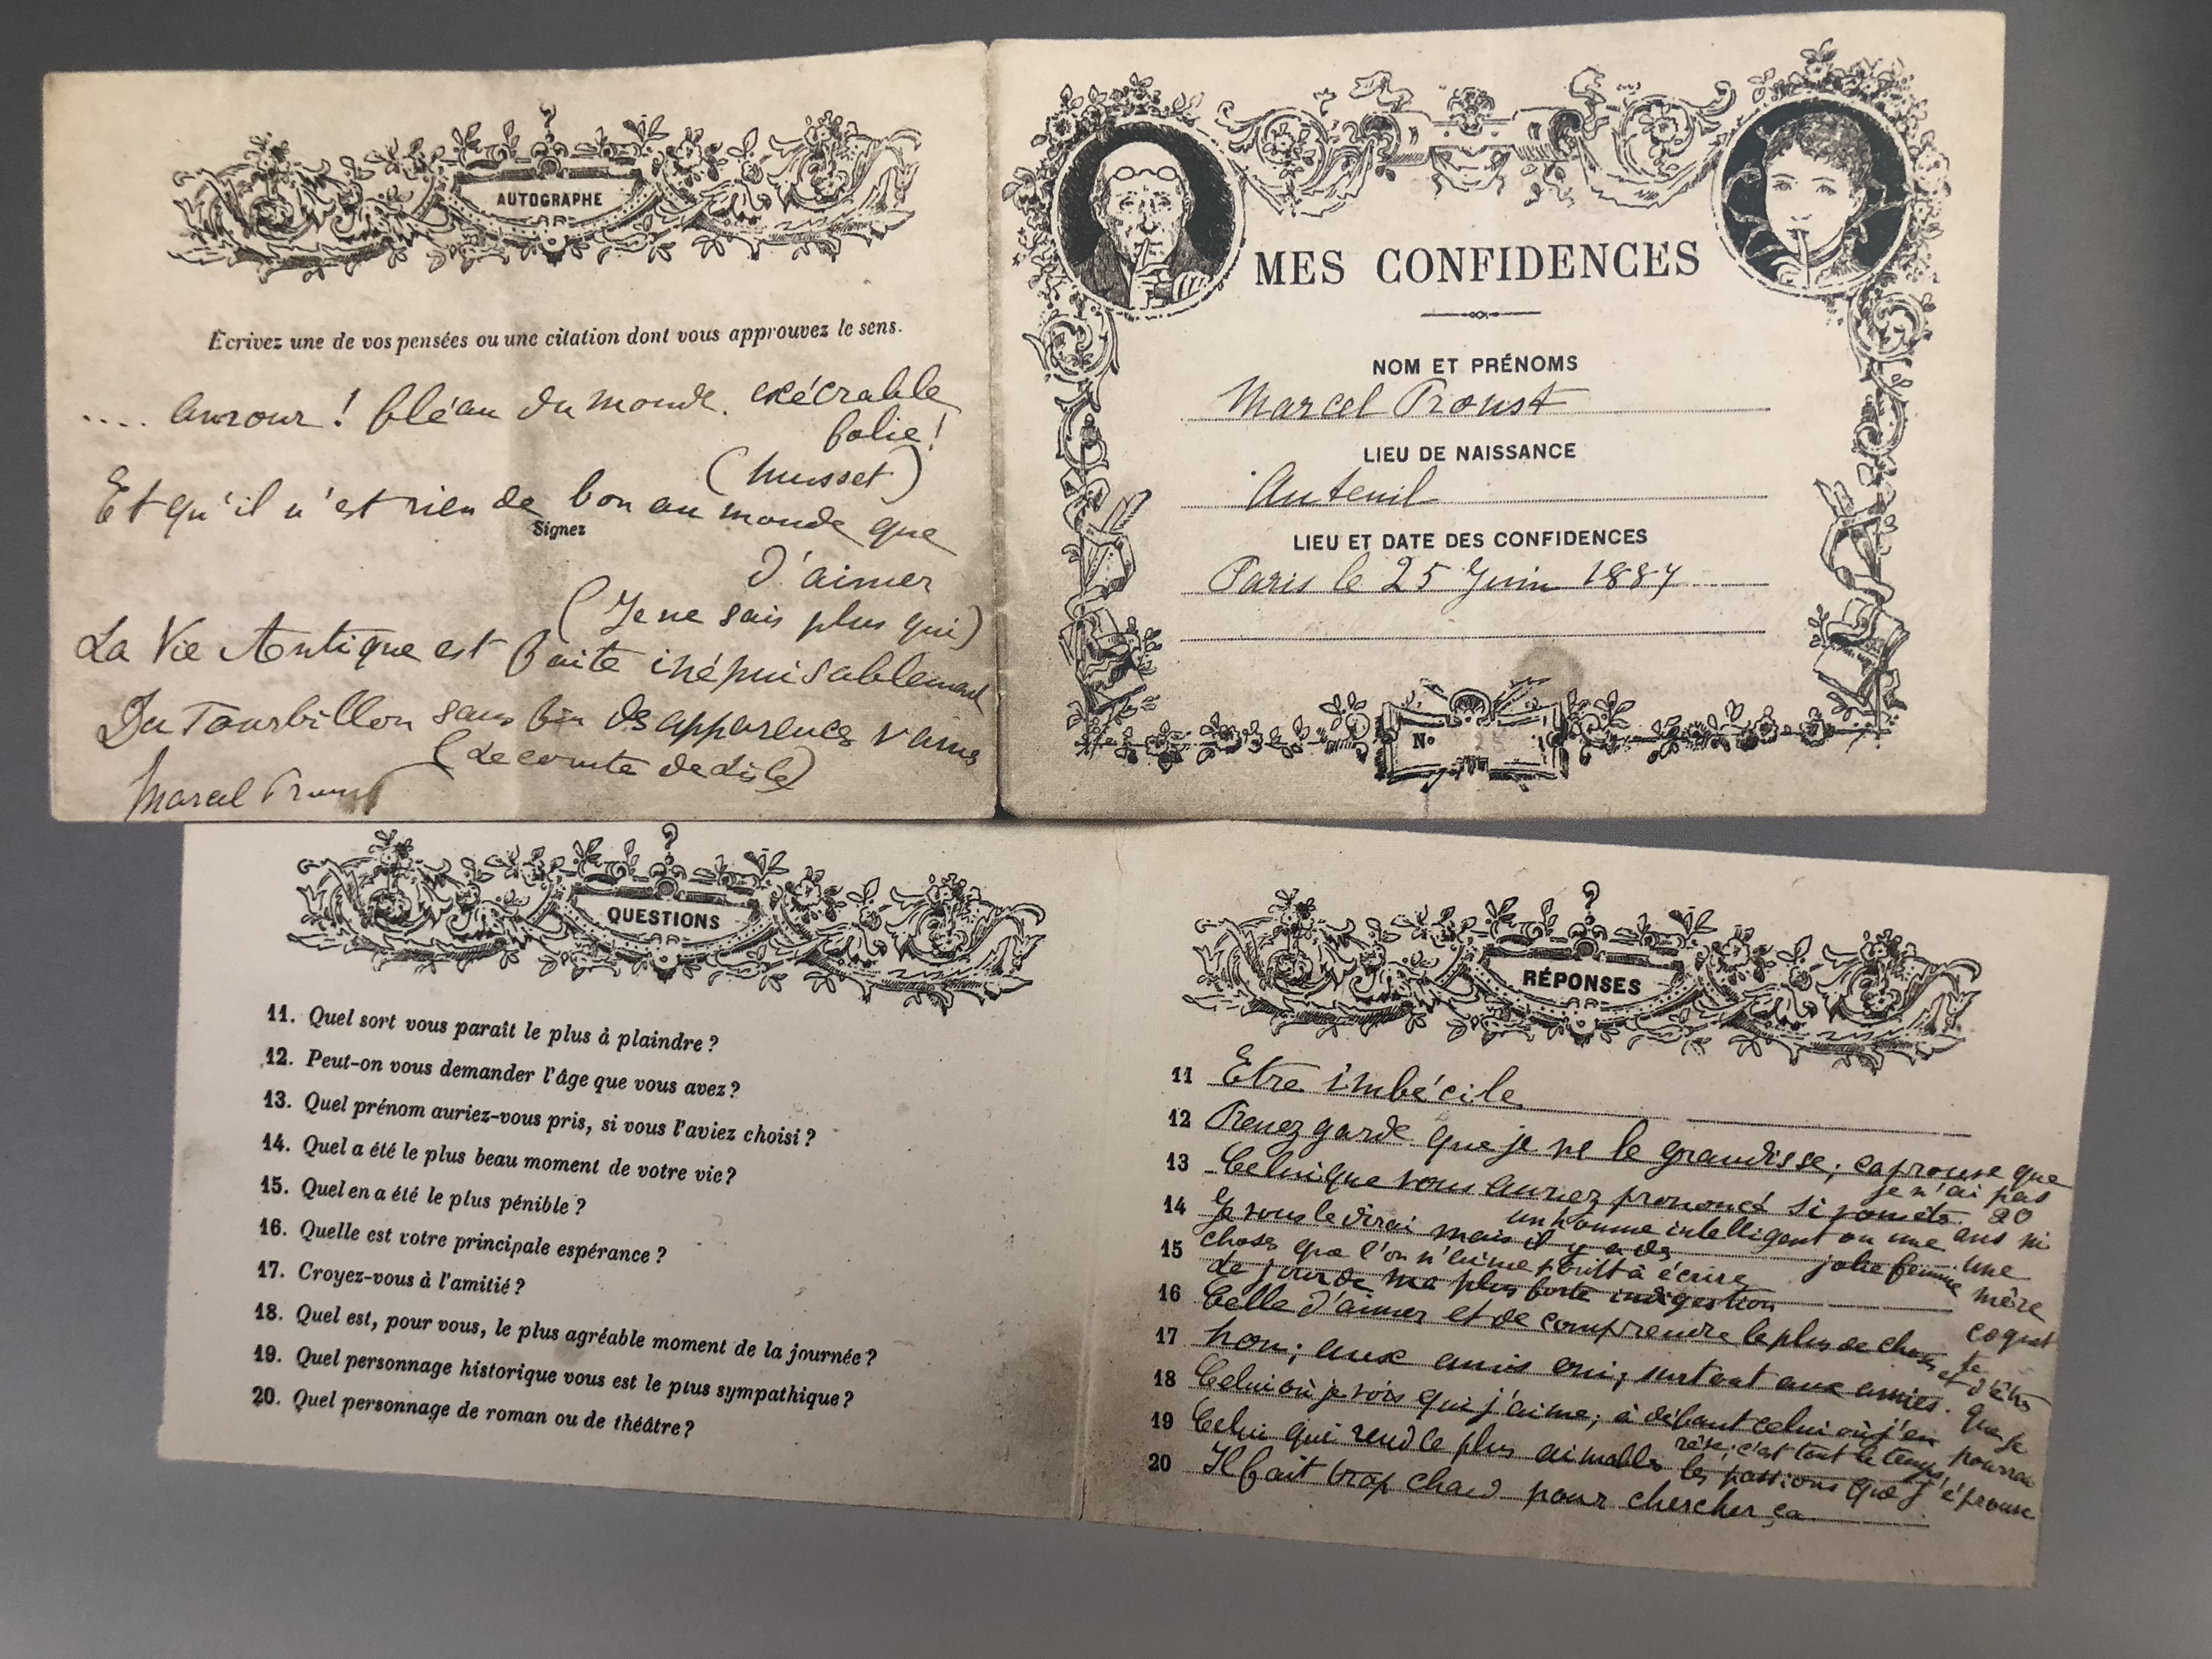 AUTOGRAPHE
Ecrivez une de vos pensées ou une citation dont vous approuvez le sens.
.... Amour ! fléau du monde. exécrable
folie !
(Musset)
Et qu'il n'est rien de bon au monde que
Signez
d'aimer
(Je ne sais plus qui)
La Vie Antique est faite inépuisablement
Du Tourbillon sans fin des apparences vaines
(Leconte de Lisle)
Marcel Proust
MES CONFIDENCES
NOM ET PRÉNOMS
Marcel Proust
LIEU DE NAISSANCE
Auteuil
LIEU ET DATE DES CONFIDENCES
Paris le 25 Juin 1887
N° 28
QUESTIONS
11. Quel sort vous paraît le plus à plaindre ?
12. Peut-on vous demander l'âge que vous avez ?
13. Quel prénom auriez-vous pris, si vous l'aviez choisi ?
14. Quel a été le plus beau moment de votre vie ?
15. Quel en a été le plus pénible ?
16. Quelle est votre principale espérance ?
17. Croyez-vous à l'amitié ?
18. Quel est, pour vous, le plus agréable moment de la journée ?
19. Quel personnage historique vous est le plus sympathique ?
20. Quel personnage de roman ou de théâtre ?
RÉPONSES
11 Etre imbécile
12 Prenez garde que je ne le grandisse, ça prouve que
je n'ai pas
20
ans ni
une
mère
coquet
te
13 Celui que vous auriez prononcé si vous êtes
un homme intelligent ou une
jolie femme
14 Je vous le dirai mais il y a des
choses que l'on n'aime point à écrire
15 Le jour de ma plus forte indigestion
16 Celle d'aimer et de comprendre le plus de choses
et d'être
que je
pourrai
17 Non ; aux amis oui ; surtout aux amies.
18 Celui où je vois qui j'aime ; à défaut celui où j'en
rêve ; c'est tout le temps
19 Celui qui rend le plus aimables les passions que j'éprouve
20 Il fait trop chaud pour chercher ça